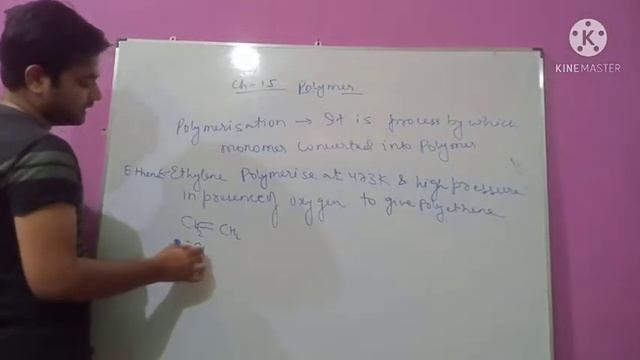 Ch-15 Polymer
Polymerisation → It is process by which
monomer converted into Polymer
Ethene Ethylene Polymerise at 473K & high pressure
in presence of oxygen to give Polyethene
CH2=CH2
KINEMASTER